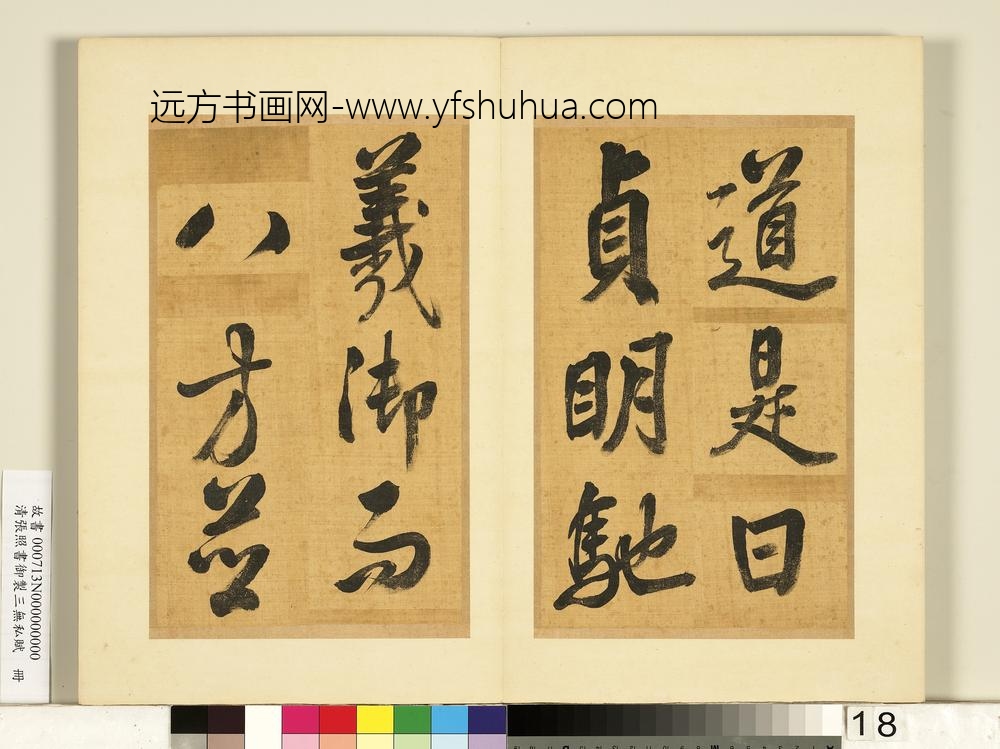 远方书画网-www.yfshuhua.com
道是日
貞明馳
羲御而
八方並
故書 000713N000000000
清張照書御製三無私賦 冊
18